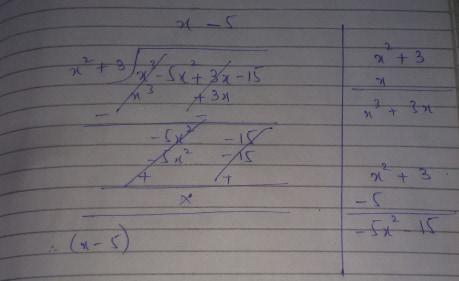 x - 5
x² + 3 ) x³ - 5x² + 3x - 15
x³ + 3x
- -
-5x² - 15
-5x² - 15
+ +
x
∴ (x - 5)
x² + 3
x
x³ + 3x
x² + 3
-5
-5x² - 15